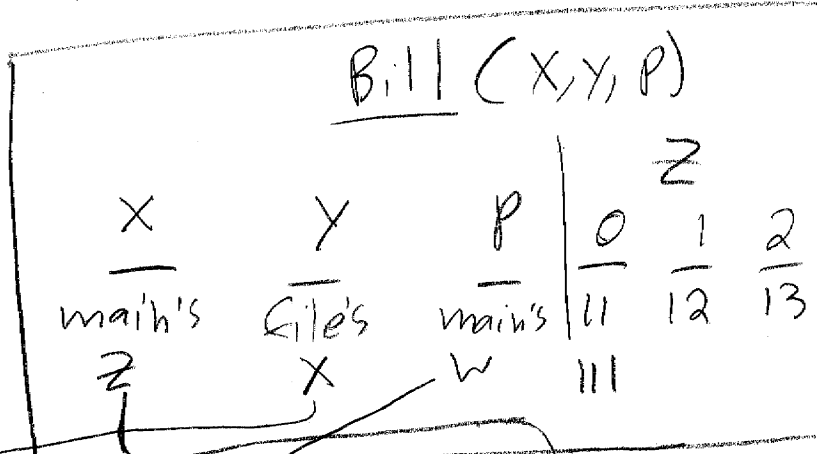 Bill (X, Y, P)
Z
X Y P 0 1 2
main's file's main's 11 12 13
Z X W 111